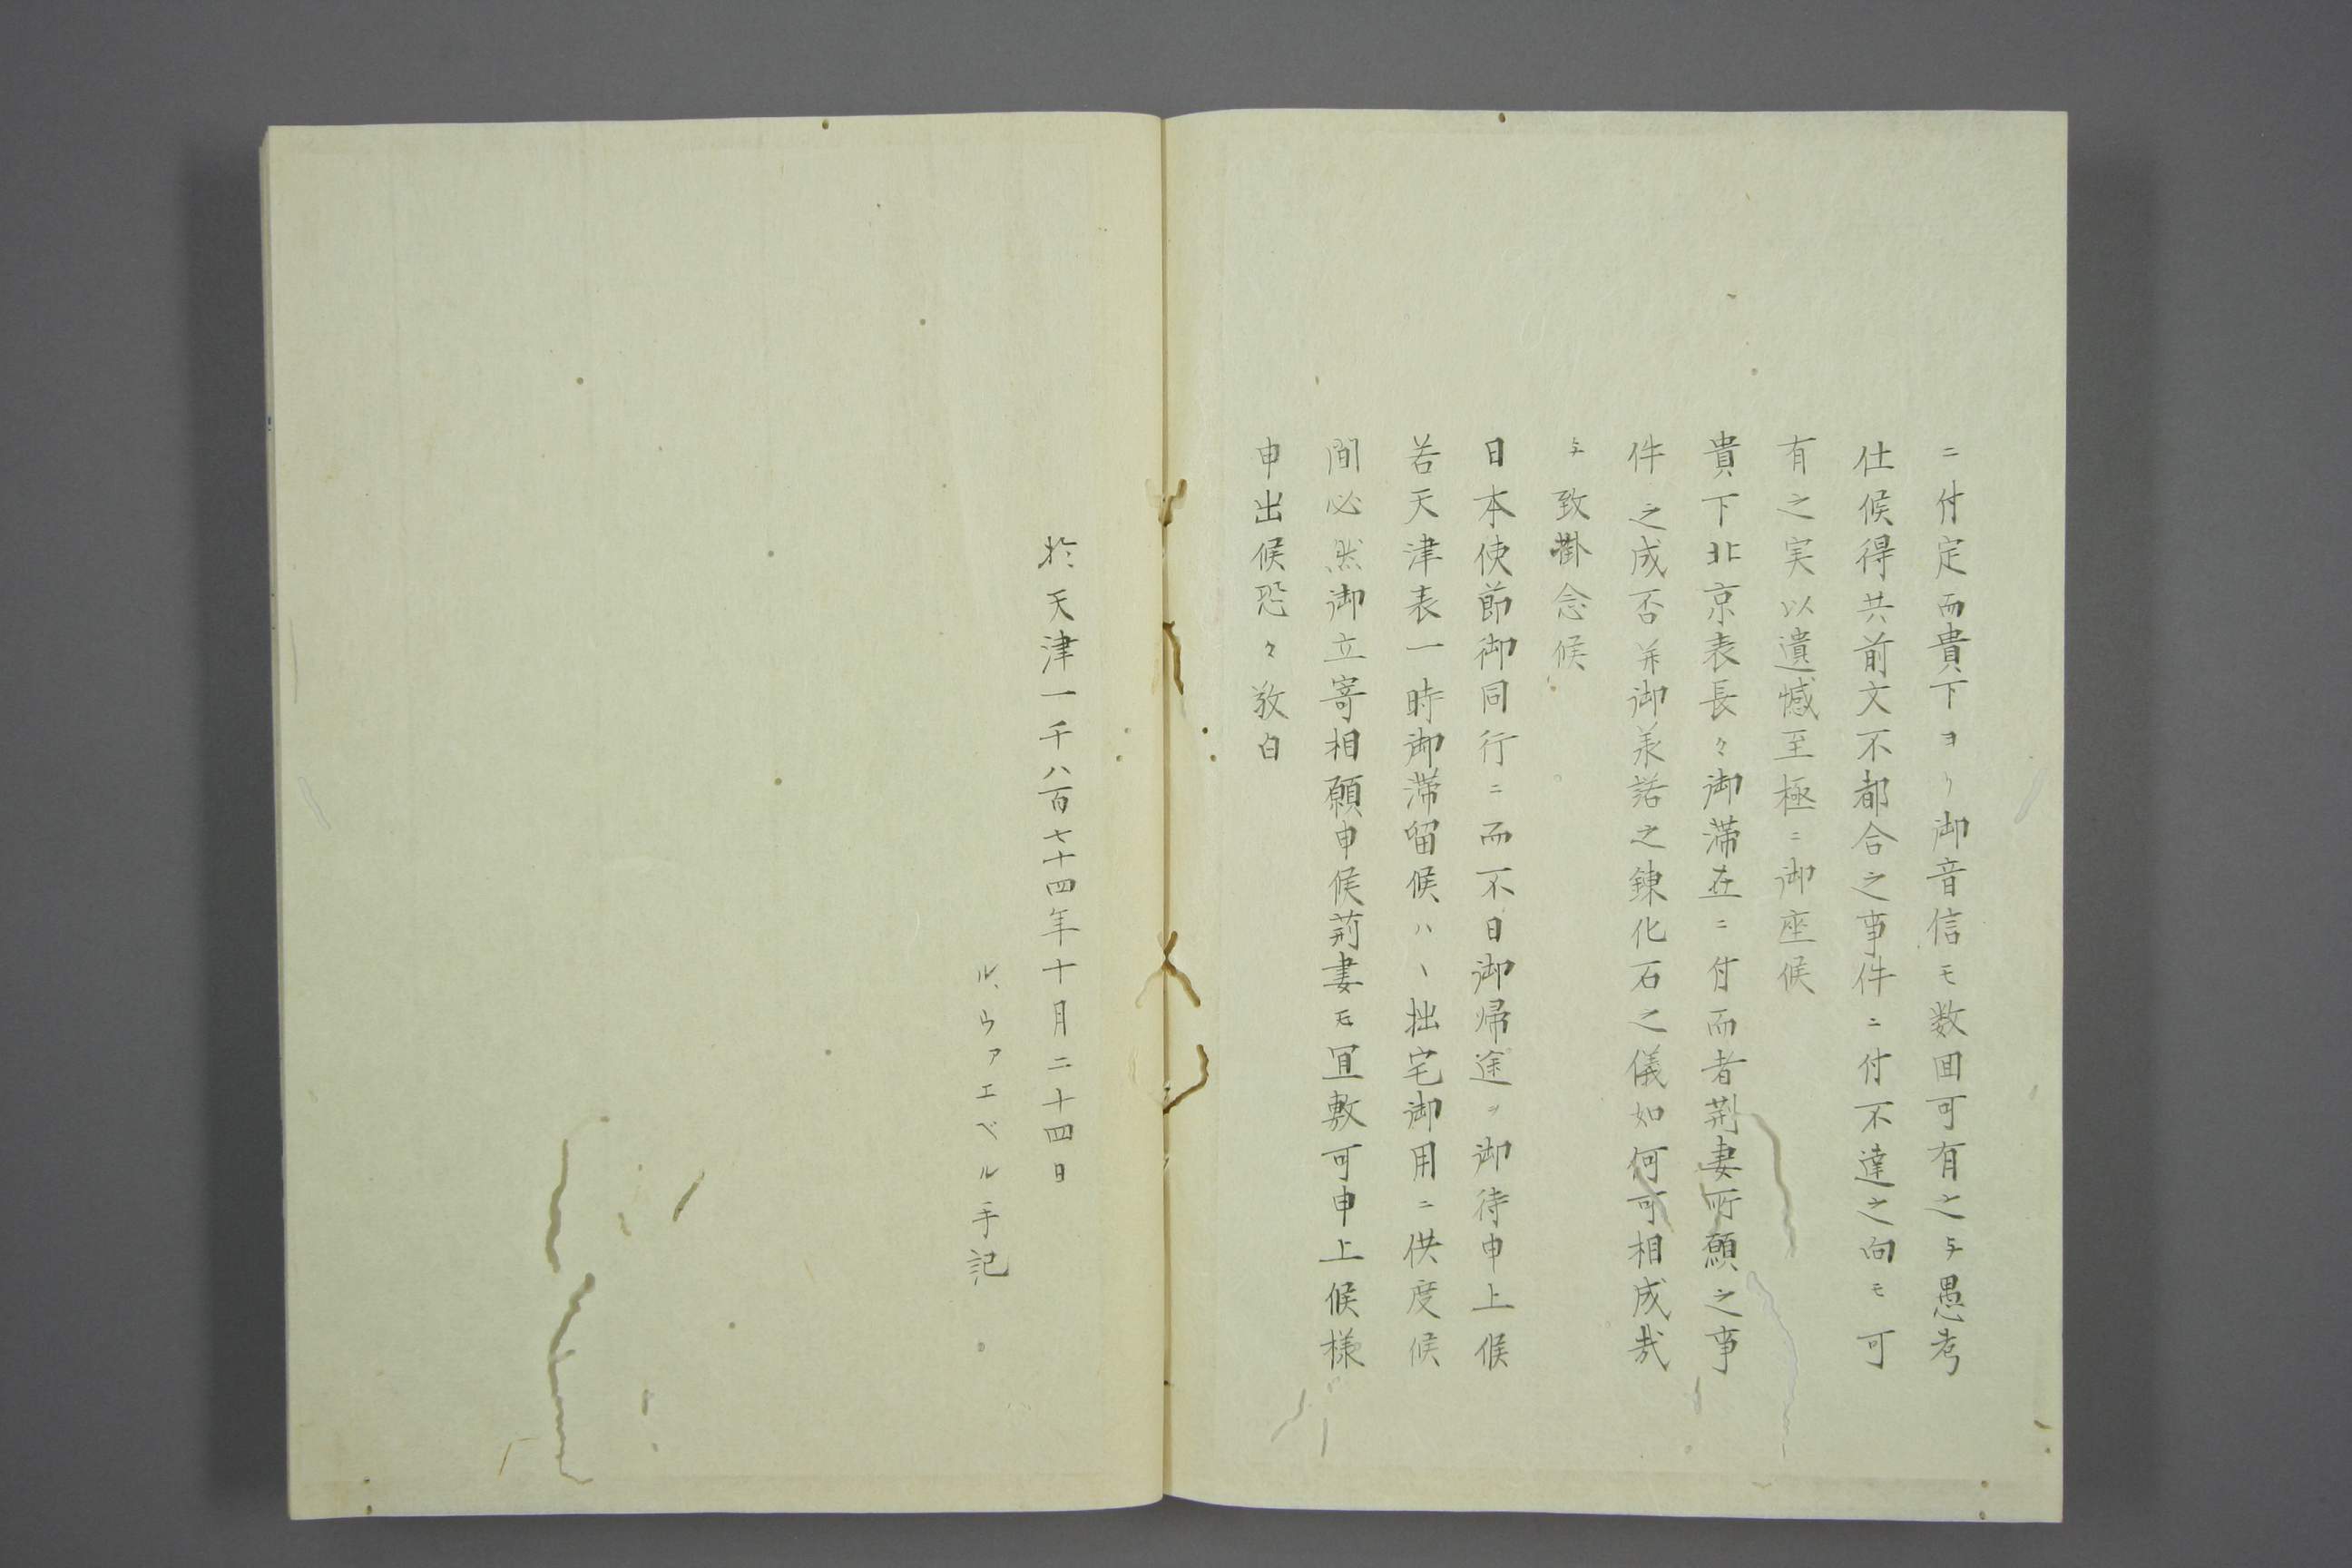 ニ付定而貴下ヨリ御音信モ数囬可有之与愚考
仕候得共前文不都合之事件ニ付不達之向モ可
有之実以遺憾至極ニ御座候
貴下北京表長々御滞在ニ付而者荆妻所願之事
件之成否并御羕諾之錬化石之儀如何可相成哉
与致掛念候
日本使節御同行ニ而不日御帰途ヲ御待申上候
若天津表一時御滞留候ハヽ拙宅御用ニ供度候
間必然御立寄相願申候荊妻モ冝敷可申上候様
申出候恐々敬白
於天津一千八百七十四年十月二十四日
ル、ウァエベル手記